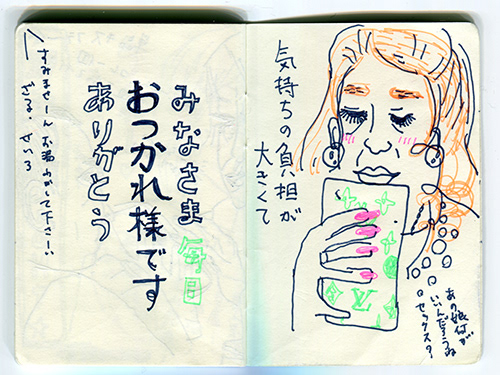 気持ちの負担が
大きくて
LV
あの娘何が
いいんだろうね
セックス?
みなさま毎日
おつかれ様です
ありがとう
すみませーんお湯わかして下さーい
ざる・せいろ